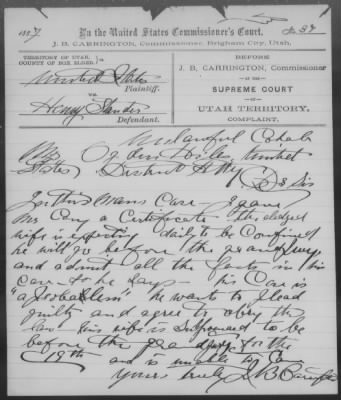 1887. In the United States Commissioner's Court, No. 37
J. B. CARRINGTON, Commissioner, Brigham City, Utah,
TERRITORY OF UTAH,
COUNTY OF BOX ELDER.
United States
Plaintiff.
VS.
Henry
Defendant.
BEFORE
J. B. CARRINGTON, Commissioner
OF THE
SUPREME COURT
OF
UTAH TERRITORY.
COMPLAINT.
Unlawful Cohab
Mr Ogden
States District Atty Dr Sir
In this mans Case I gave
Mr a Certificate the alleged
wife is expecting daily to be Confined
he will go before the grand jury
and admit all the facts in his
case so he says his Case is
he wants to plead
guilty and agree to obey the
law his wife is subpoenaed to be
before the grand jury for the
19th and is unable to
Yours truly J B